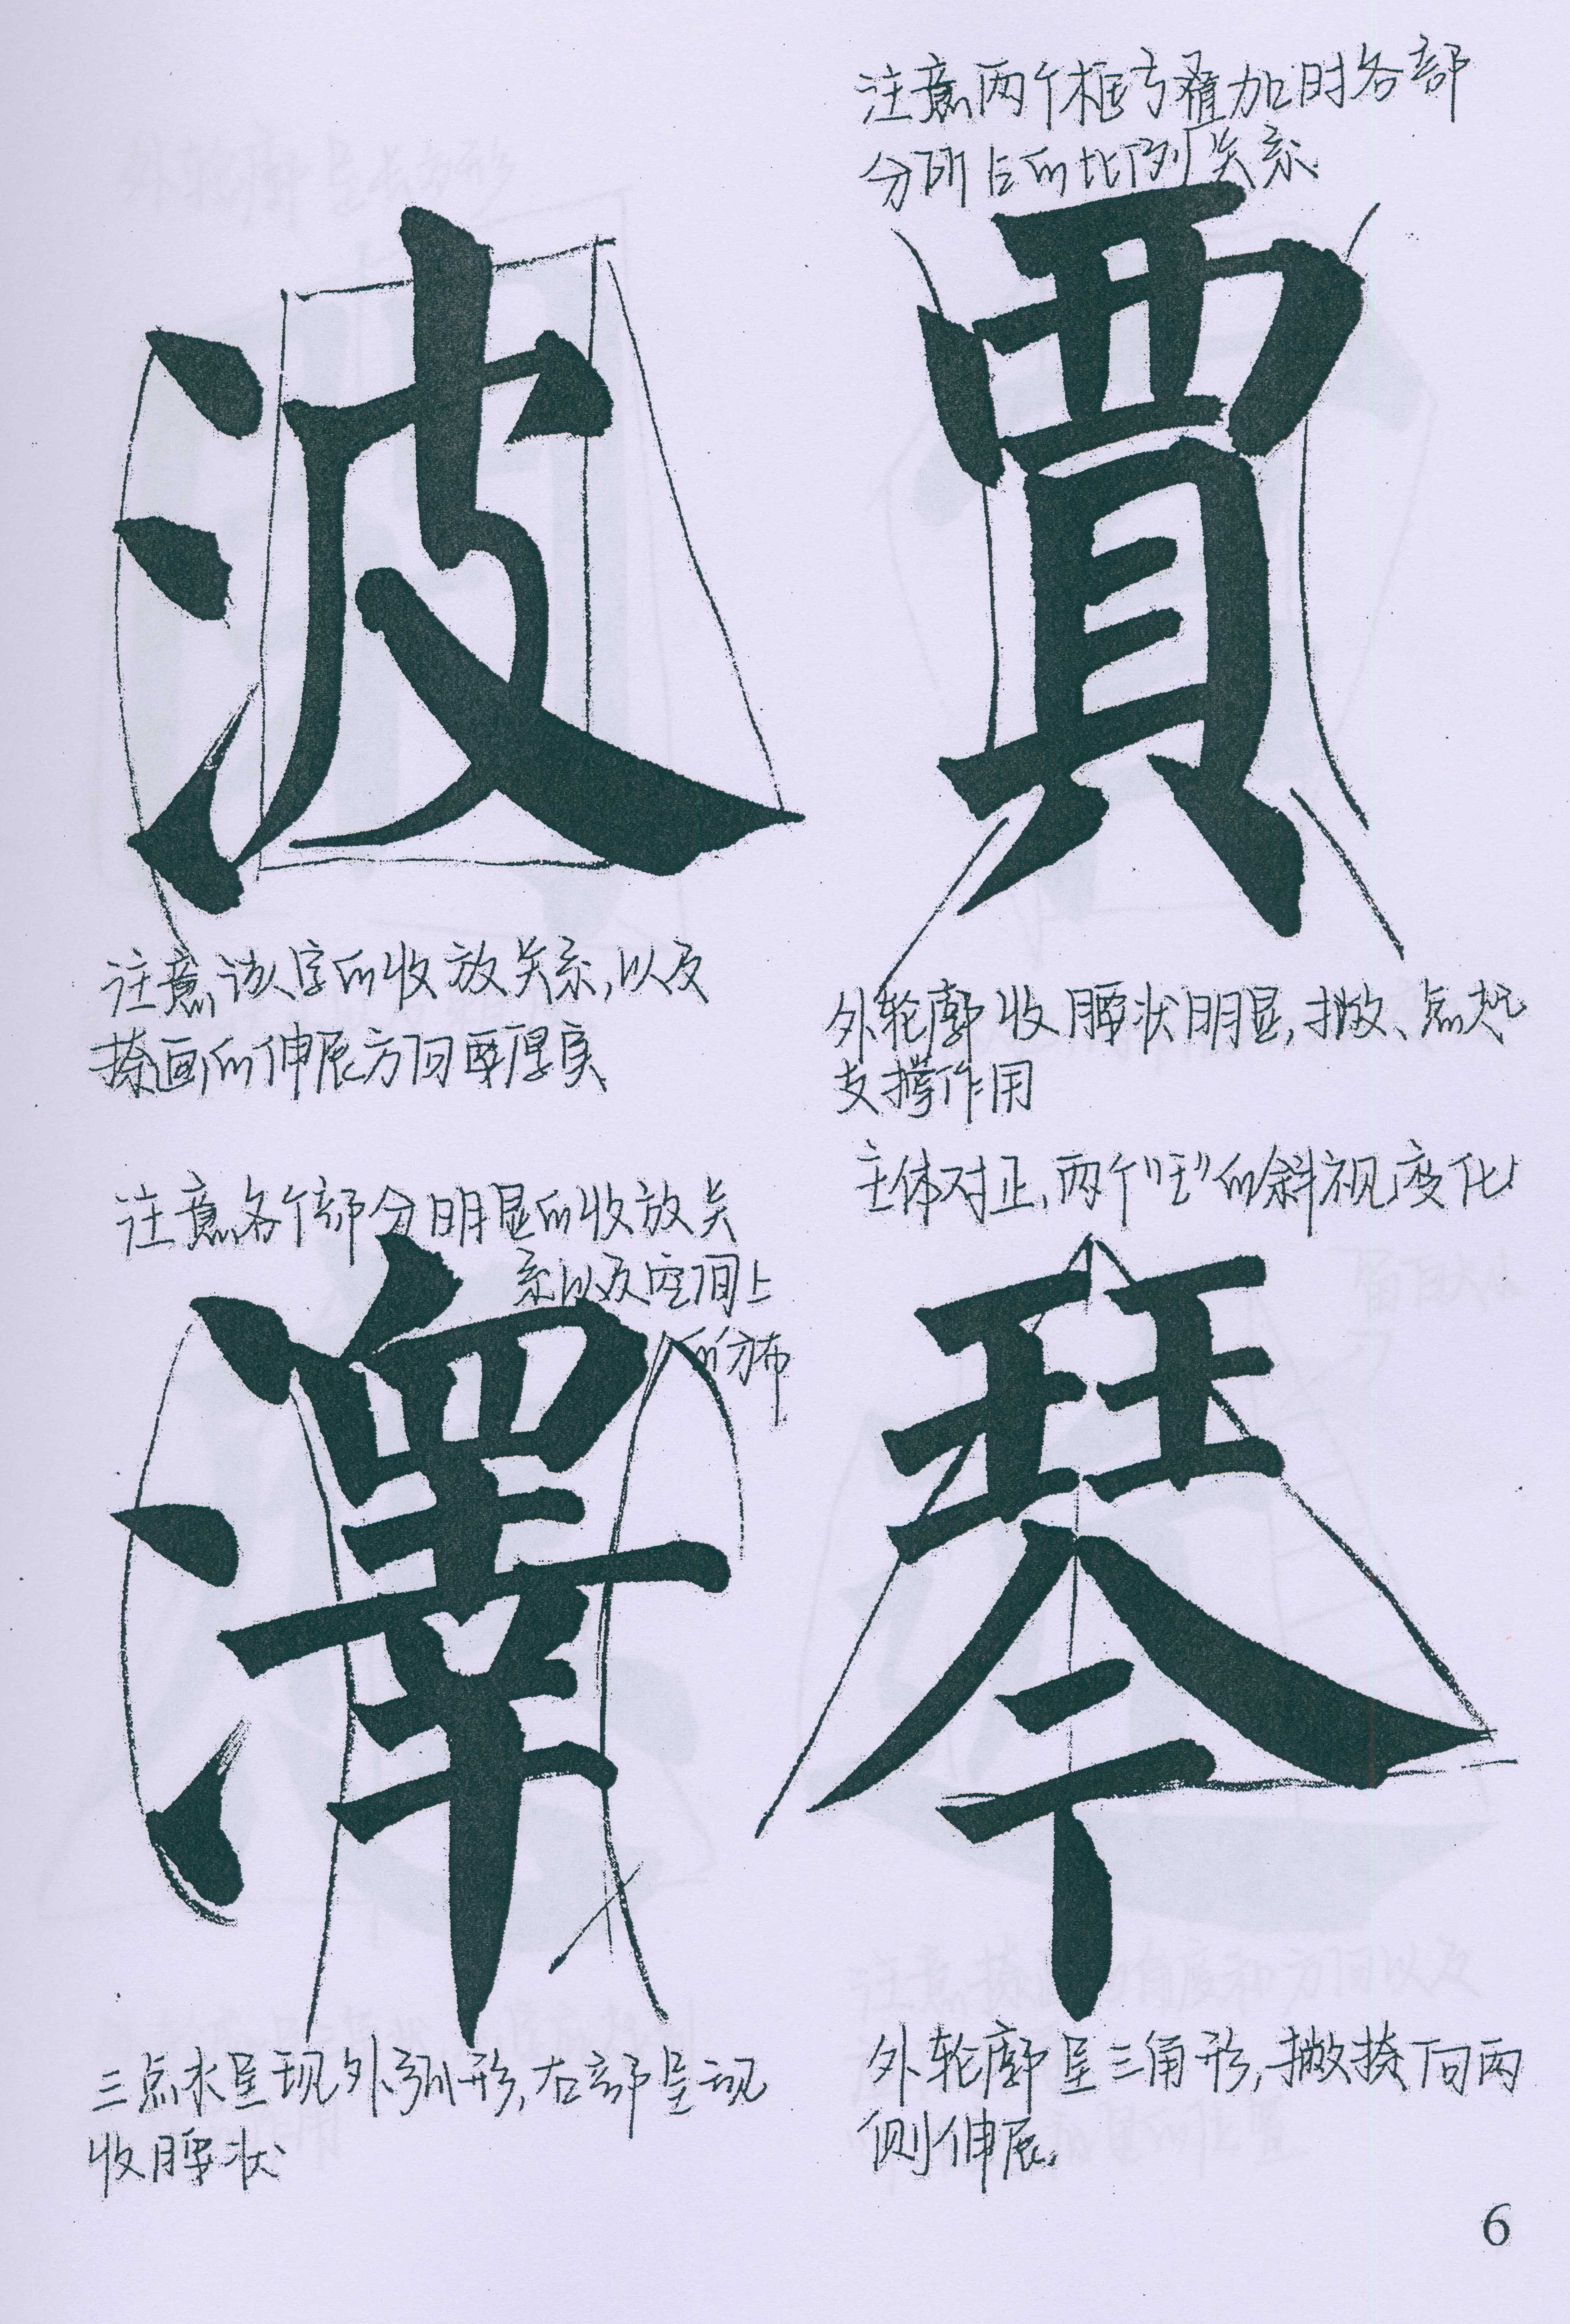 注意两个框与叠加时各部
分所占的比例关系
波
賈
注意该字的收放关系,以及
捺画的伸展方向要厚实
外轮廓收腰状明显,撇、点起
支撑作用
注意各个部分明显的收放关
系以及空间上
的分布
主体对正,两个"王"的斜视变化
澤
琴
三点水呈现外弧形,右部呈现
收腰状
外轮廓呈三角形,撇捺下向两
侧伸展.
6